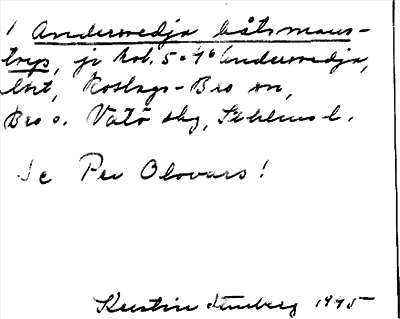 1 Andersvedja båtsmans-
torp, jr kol. 5:46 Andersvedja,
Roslags-Bro sn,
Bro o. Vätö skg, Sthlms l.
Se Per Olovars!
Kerstin Lundberg 1945